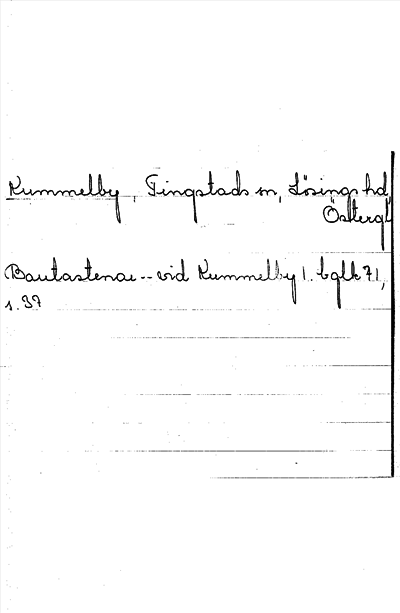 Kummelby, Tingstads sn, Lösings hd,
Östergl
Bautastenar -- vid Kummelby l. bglk 71,
s. 37